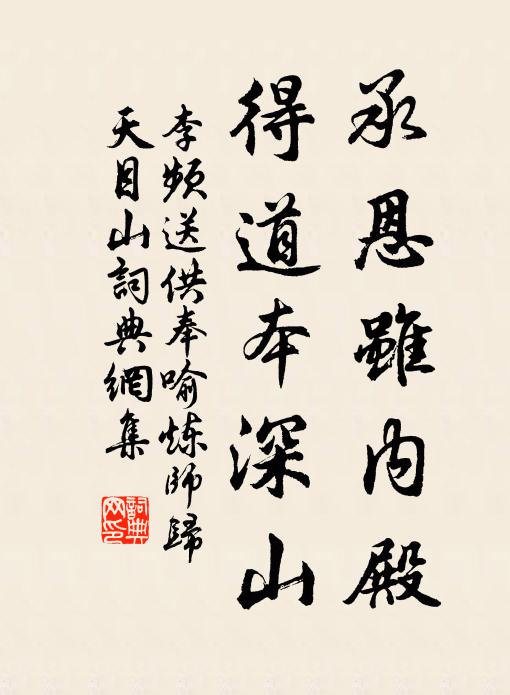 承恩雖内殿
得道本深山
李頻送供奉喻炼師歸
天目山詞典網集
詞典
网印